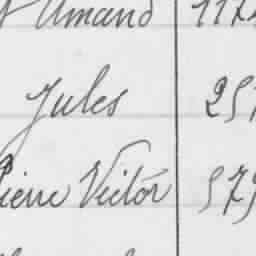 Amand 117
Jules 251
Pierre Victor 579